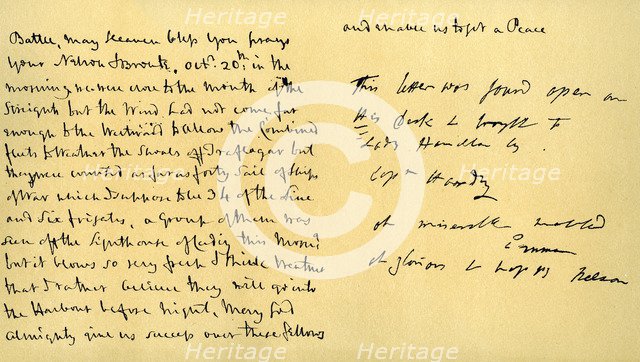 Battle, may heaven bless you prays
your Nelson & Bronte, Octr. 20th in the
morning we were close to the mouth of the
Streights but the Wind had not come far
enough to the Westward to allow the Combined
fleets to weather the Shoals off Traflagar but
they were counted as far as forty Sail of Ships
of War which I suppose to be 34 of the Line
and Six frigates, a Group of them was
seen off the Lighthouse of Cadiz this Morng
but it blows so very fresh I think weather
that I rather believe they will go into
the Harbour before night, May God
Almighty give us success over these fellows
and enable us to get a Peace
This letter was found open on
His Desk & brought to
Lady Hamilton by
Capn Hardy
oh miserable wretched
Emma
oh glorious & happy Nelson
Heritage
Heritage
Heritage
Heritage
Heritage
Heritage
Heritage
Heritage
©